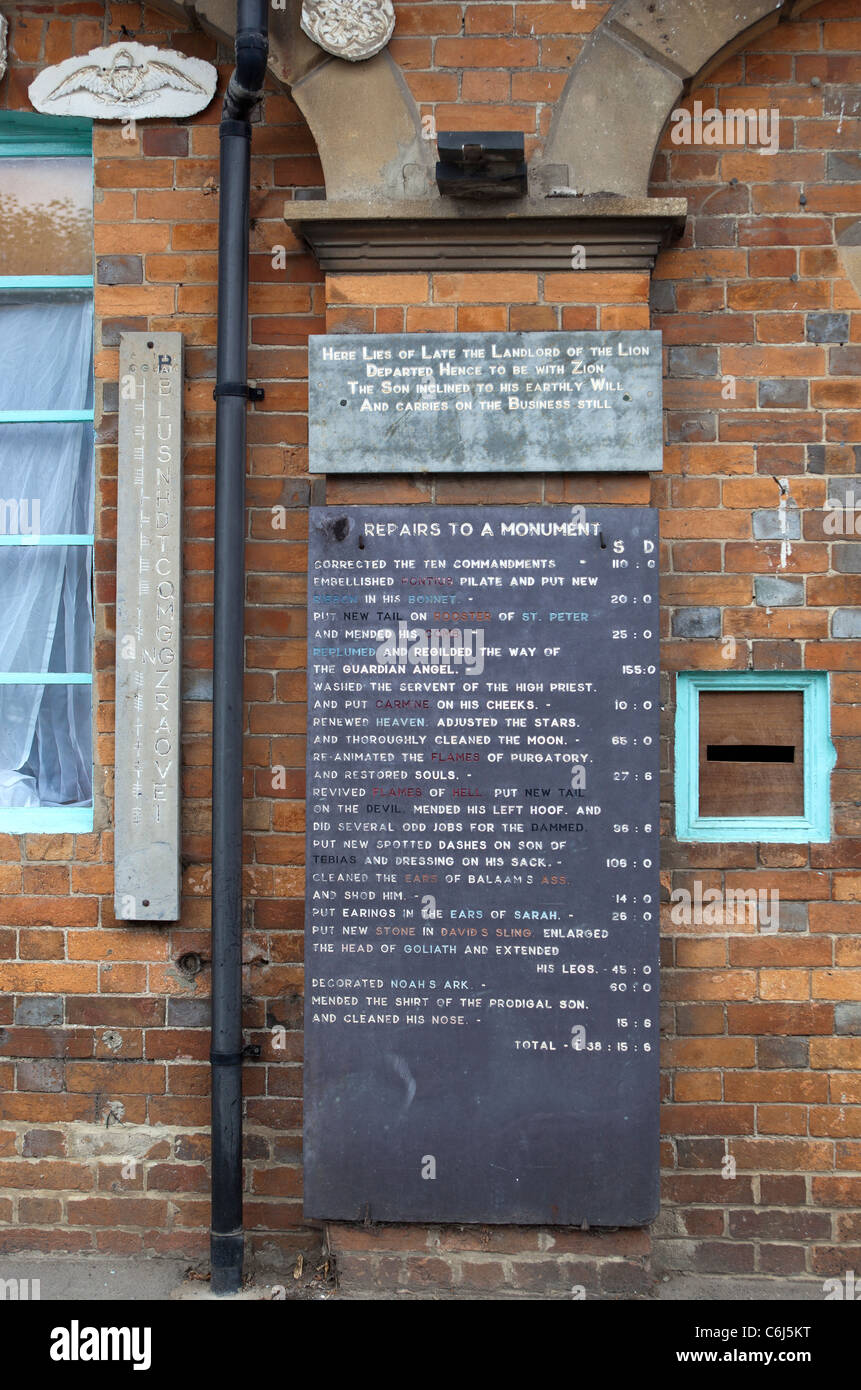 Here Lies of Late the Landlord of the Lion
Departed Hence to be with Zion
The Son inclined to his earthly Will
And carries on the Business still
REPAIRS TO A MONUMENT
S D
CORRECTED THE TEN COMMANDMENTS - 110 : 6
EMBELLISHED PONTIUS PILATE AND PUT NEW
RIBBON IN HIS BONNET. - 20 : 0
PUT NEW TAIL ON ROOSTER OF ST. PETER
AND MENDED HIS 25 : 0
REPLUMED AND REGILDED THE WAY OF
THE GUARDIAN ANGEL. 155:0
WASHED THE SERVENT OF THE HIGH PRIEST.
AND PUT CARMINE ON HIS CHEEKS. - 10 : 0
RENEWED HEAVEN. ADJUSTED THE STARS.
AND THOROUGHLY CLEANED THE MOON. - 65 : 0
RE-ANIMATED THE FLAMES OF PURGATORY.
AND RESTORED SOULS. - 27 : 6
REVIVED FLAMES OF HELL. PUT NEW TAIL
ON THE DEVIL. MENDED HIS LEFT HOOF. AND
DID SEVERAL ODD JOBS FOR THE DAMMED. 96 : 6
PUT NEW SPOTTED DASHES ON SON OF
TEBIAS AND DRESSING ON HIS SACK. - 108 : 0
CLEANED THE EARS OF BALAAM'S ASS.
AND SHOD HIM. - 14 : 0
PUT EARINGS IN THE EARS OF SARAH. - 26 : 0
PUT NEW STONE IN DAVID'S SLING. ENLARGED
THE HEAD OF GOLIATH AND EXTENDED
HIS LEGS. - 45 : 0
DECORATED NOAH'S ARK. - 60 : 0
MENDED THE SHIRT OF THE PRODIGAL SON.
AND CLEANED HIS NOSE. - 15 : 6
TOTAL - £ 38 : 15 : 6
OGHAM
BLUSNHDTCQMGGZRAOVEI
a alamy stock photo
alamy
Image ID: C6J5KT
www.alamy.com